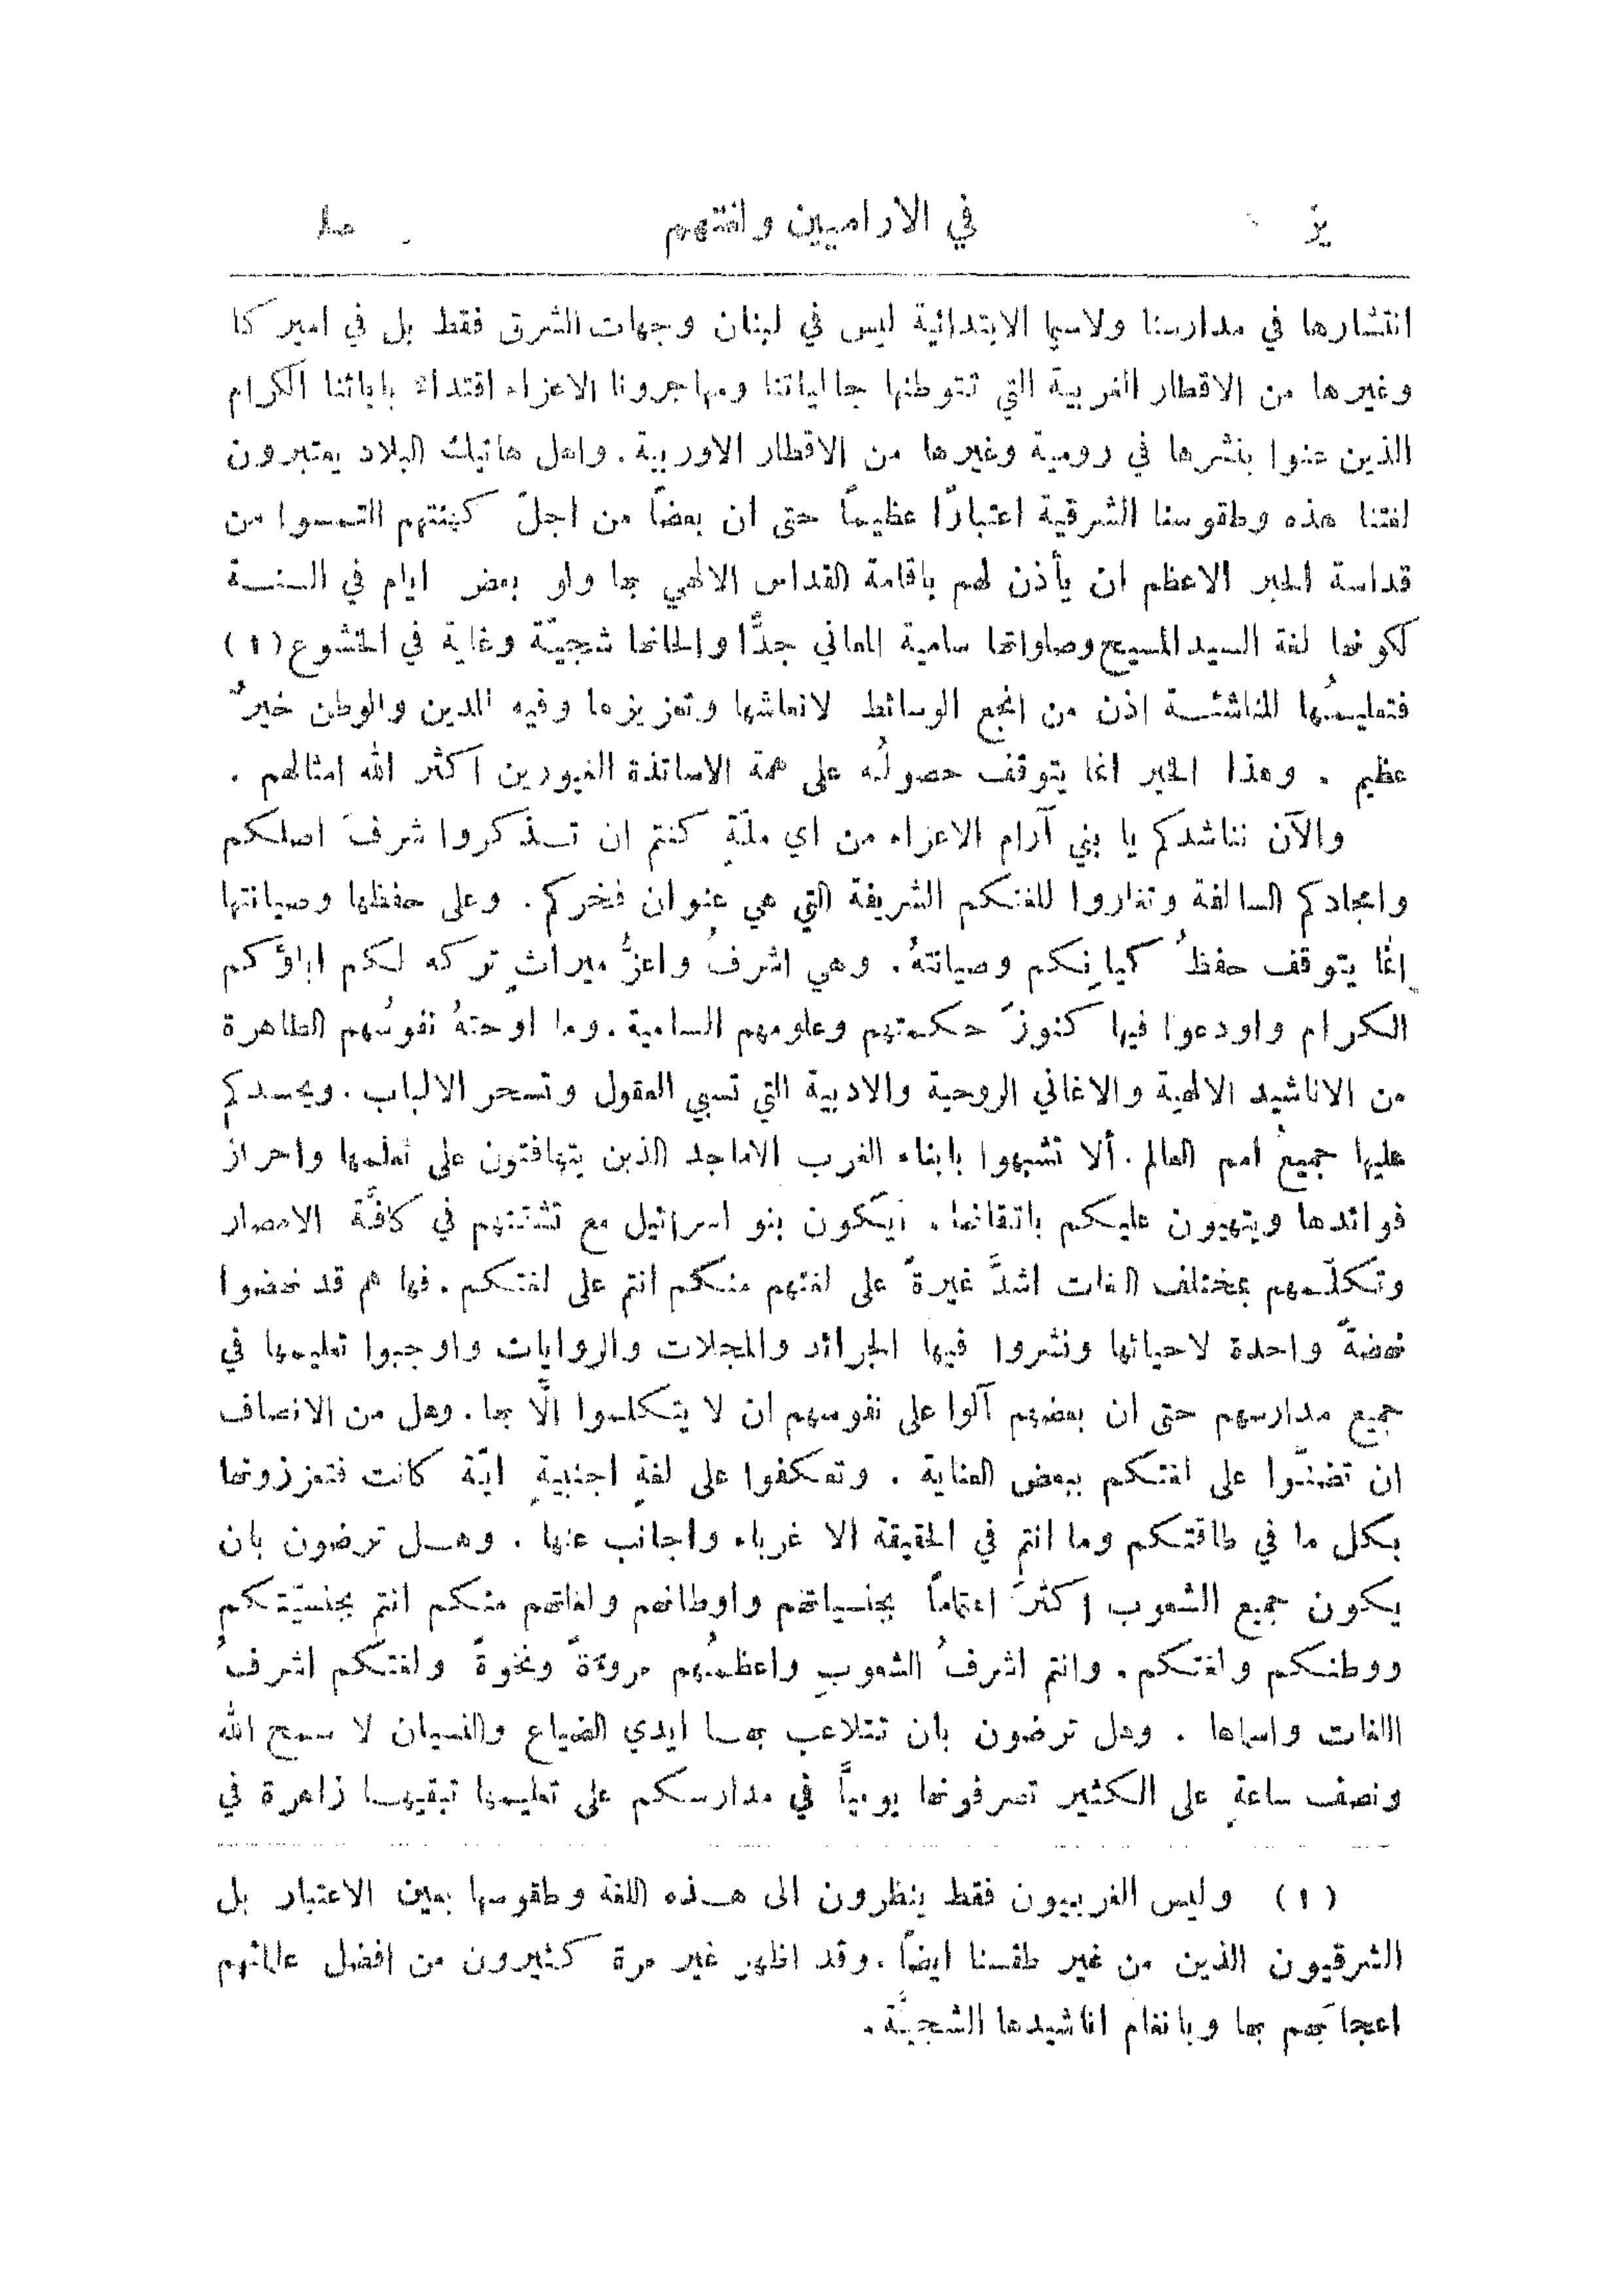 يز في الاراميين ولغتهم
انتشارها في مدارسنا ولاسيما الابتدائية ليس في لبنان وجهات الشرق فقط بل في اميركا
وغيرها من الاقطار الغربية التي تتوطنها جالياتنا ومهاجرونا الاعزاء اقتداء بابائنا الكرام
الذين عنوا بنشرها في رومية وغيرها من الاقطار الاوربية. واهل هاتيك البلاد يعتبرون
لغتنا هذه وطقوسنا الشرقية اعتبارًا عظيمًا حتى ان بعضًا من اجلّ كهنتهم التمسوا من
قداسة الحبر الاعظم ان يأذن لهم باقامة القداس الالهي بها ولو بعض ايام في السنة
لكونها لغة السيد المسيح وصلواتها سامية المعاني جدًّا والحانها شجيّة وغاية في الخشوع (١)
فتعليمُها للناشئة اذن من انجع الوسائط لانعاشها وتعزيزها وفيه للدين والوطن خيرٌ
عظيم . وهذا الخير انما يتوقف حصولُه على همة الاساتذة الغيورين اكثر الله امثالهم .
والآن نناشدكم يا بني آرام الاعزاء من اي ملّةٍ كنتم ان تـذكروا شرفَ اصلكم
وامجادكم السالفة وتغاروا للغتكم الشريفة التي هي عنوان فخركم. وعلى حفظها وصيانتها
انمَّا يتوقف حفظُ كيانِكم وصيانتهُ. وهي اشرفُ واعزُّ ميراثٍ تركه لكم اباؤكم
الكرام واودعوا فيها كنوزَ حكمتهم وعلومهم السامية. وما اوحتهُ نفوسُهم الطاهرة
من الاناشيد الالهية والاغاني الروحية والادبية التي تسبي العقول وتسحر الالباب. ويحسدكم
عليها جميعُ امم العالم. ألا تشبهوا بابناء الغرب الاماجد الذين يتهافتون على تعلمها واحراز
فوائدها ويتهيون عليكم باتقانها. أيكون بنو اسرائيل مع تشتتهم في كافَّة الامصار
وتكلّمهم بمختلف اللغات اشدَّ غيرةً على لغتهم منكم انتم على لغتكم. فها هم قد نهضوا
نهضةً واحدة لاحيائها ونشروا فيها الجرائد والمجلات والروايات واوجبوا تعليمها في
جميع مدارسهم حتى ان بعضهم آلوا على نفوسهم ان لا يتكلموا الَّا بها. وهل من الانصاف
ان تضنّوا على لغتكم ببعض العناية . وتعكفوا على لغةٍ اجنبيةٍ ايّة كانت فتعززونها
بكل ما في طاقتكم وما انتم في الحقيقة الا غرباء واجانب عنها . وهـل ترضون بان
يكون جميع الشعوب اكثرَ اهتمامًا بجنسياتهم واوطانهم ولغاتهم منكم انتم بجنسيّتكم
ووطنكم ولغتكم. وانتم اشرفُ الشعوبِ واعظمُهم مروءَةً ونخوةً ولغتكم اشرفُ
اللغات واسماها . وهل ترضون بان تتلاعب بهـا ايدي الضياع والنسيان لا سمح الله
ونصف ساعةٍ على الكثير تصرفونها يوميًّا في مدارسكم على تعليمها تبقيهـا زاهرة في
(١) وليس الغربيون فقط ينظرون الى هـذه اللغة وطقوسها بعين الاعتبار بل
الشرقيون الذين من غير طقسنا ايضًا. وقد اظهر غير مرة كثيرون من افضل علمائهم
اعجابَهم بها وبانغام اناشيدها الشجيَّة.